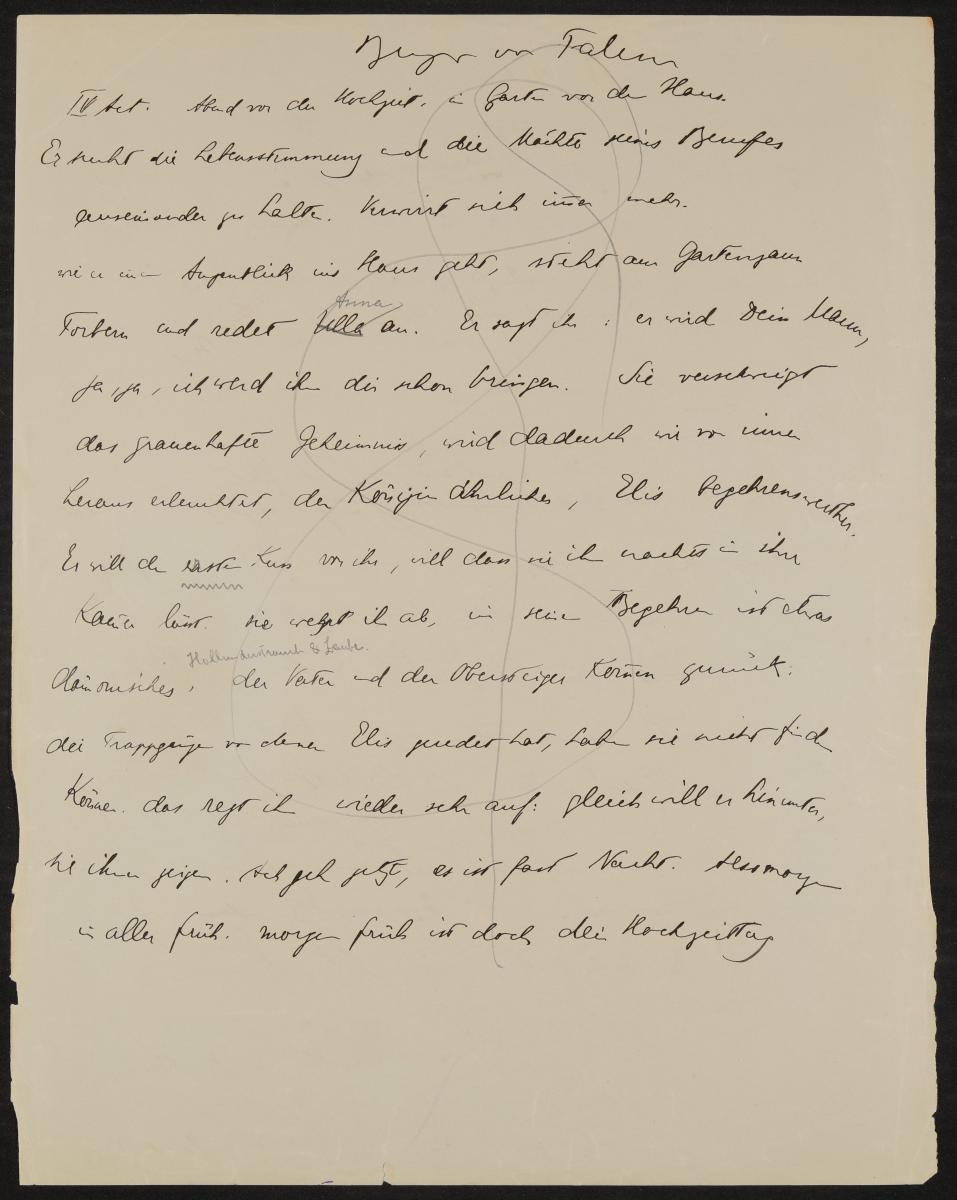 Bergw von Falun
IV Act. Abend vor der Hochzeit. in Garten vor dem Haus.
Er sucht die Lebensstimmung und die Mächte seines Berufes
auseinander zu halten. Verwirrt sich im̅er mehr.
wie er einen Augenblick ins Haus geht, steht am Gartenzaun
Anna
Torbern und redet Ulla an. Er sagt ihr: er wird Dein Mann,
ja, ja, ich werd ihn dir schon bringen. Sie verschweigt
das grauenhafte Geheimnis, wird dadurch wie von innen
heraus erleuchtet, der Königin ähnlicher, Elis begehrenswerther.
Er will den ersten Kuss von ihr, will dass sie ihn nachts in ihre
Kam̅er lässt. sie wehrt ihn ab, in seinem Begehren ist etwas
Hollunderstrauch & Laube.
dämonisches. der Vater und der Obersteiger kom̅en zurück:
die Trappgänge von denen Elis geredet hat, haben sie nicht finden
können. das regt ihn wieder sehr auf: gleich will er hinunter,
sie ihnen zeigen. Ach geh jetzt, es ist fast Nacht. Also morgen
in aller früh. morgen früh ist doch dein Hochzeittag